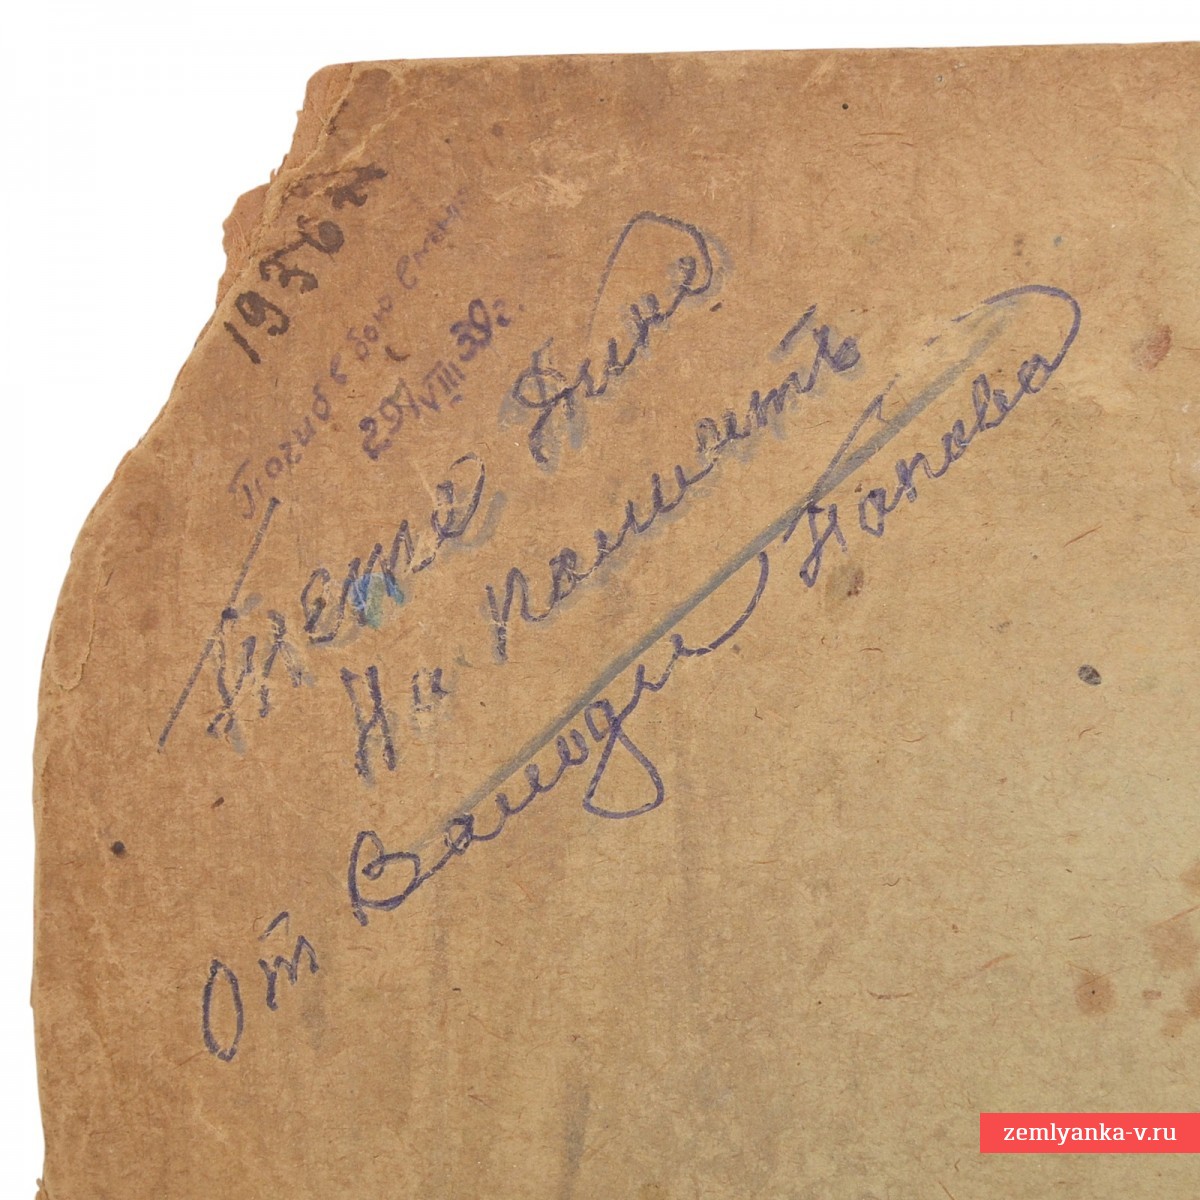 1936 г.
Погиб в бою с
29/VIII 39 г.
Тете Дине
На память
От Володи Попова
zemlyanka-v.ru